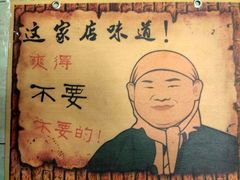 这家店味道！
爽得
不要
不要的！